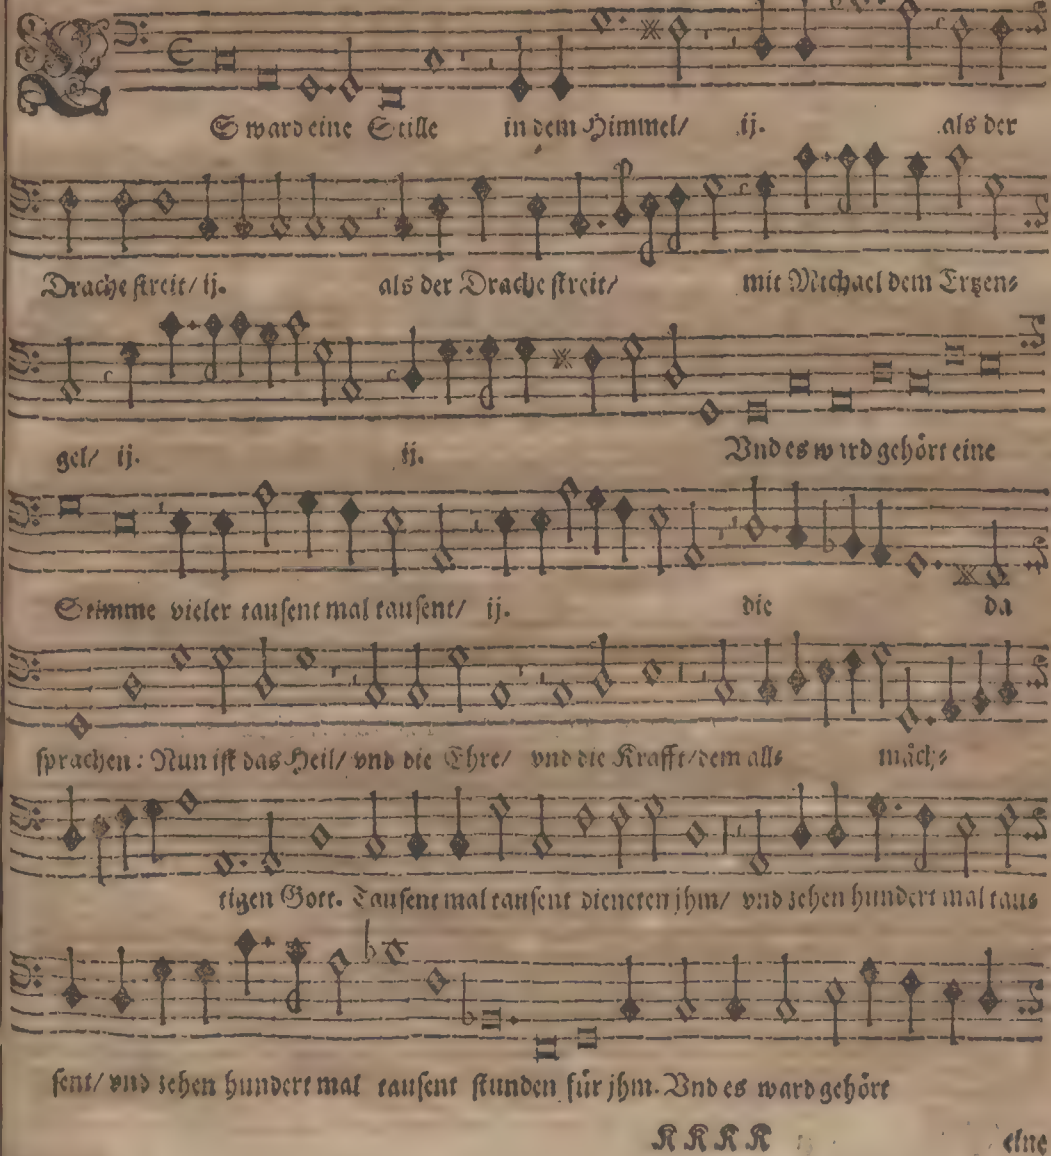 ES ward eine Stille in dem Himmel/ ij. als der
Drache streit/ ij. als der Drache streit/ mit Michael dem Ertzen⸗
gel/ ij. ij. Vnd es wird gehört eine
Stimme vieler tausent mal tausent/ ij. die da
sprachen: Nun ist das Heil/ vnd die Ehre/ vnd die Krafft/ dem all⸗ mäch⸗
tigen Gott. Tausent mal tausent dieneten jhm/ vnd zehen hundert mal taus
sent/ vnd zehen hundert mal tausent stunden für jhm. Vnd es ward gehört
KKKK eine